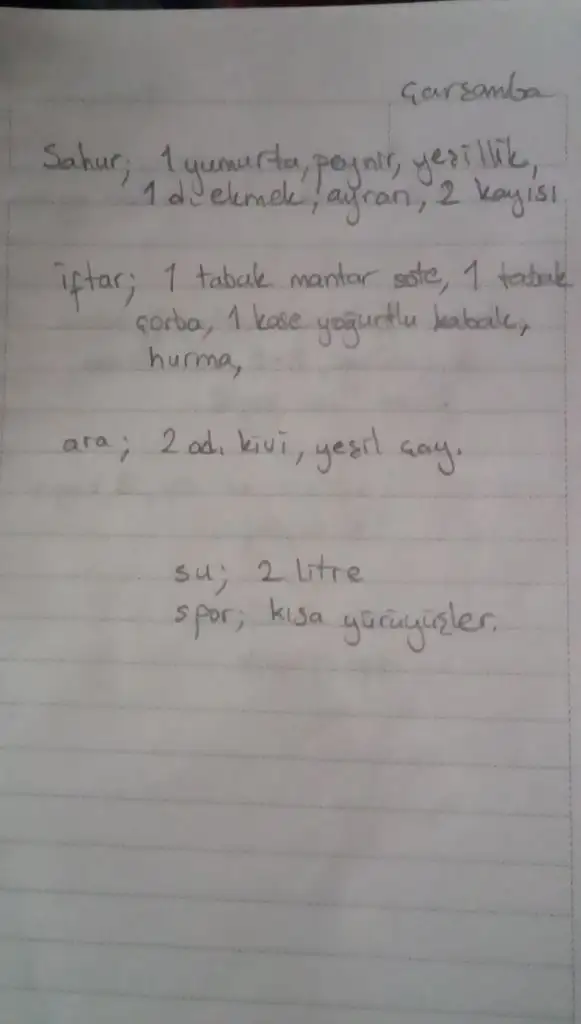 Çarşamba
Sahur; 1 yumurta, peynir, yeşillik,
1 d. ekmek, ayran, 2 kayısı
iftar; 1 tabak mantar sote, 1 tabak
çorba, 1 kase yoğurtlu kabak,
hurma,
ara; 2 ad. kivi, yeşil çay.
su; 2 litre
spor; kısa yürüyüşler.